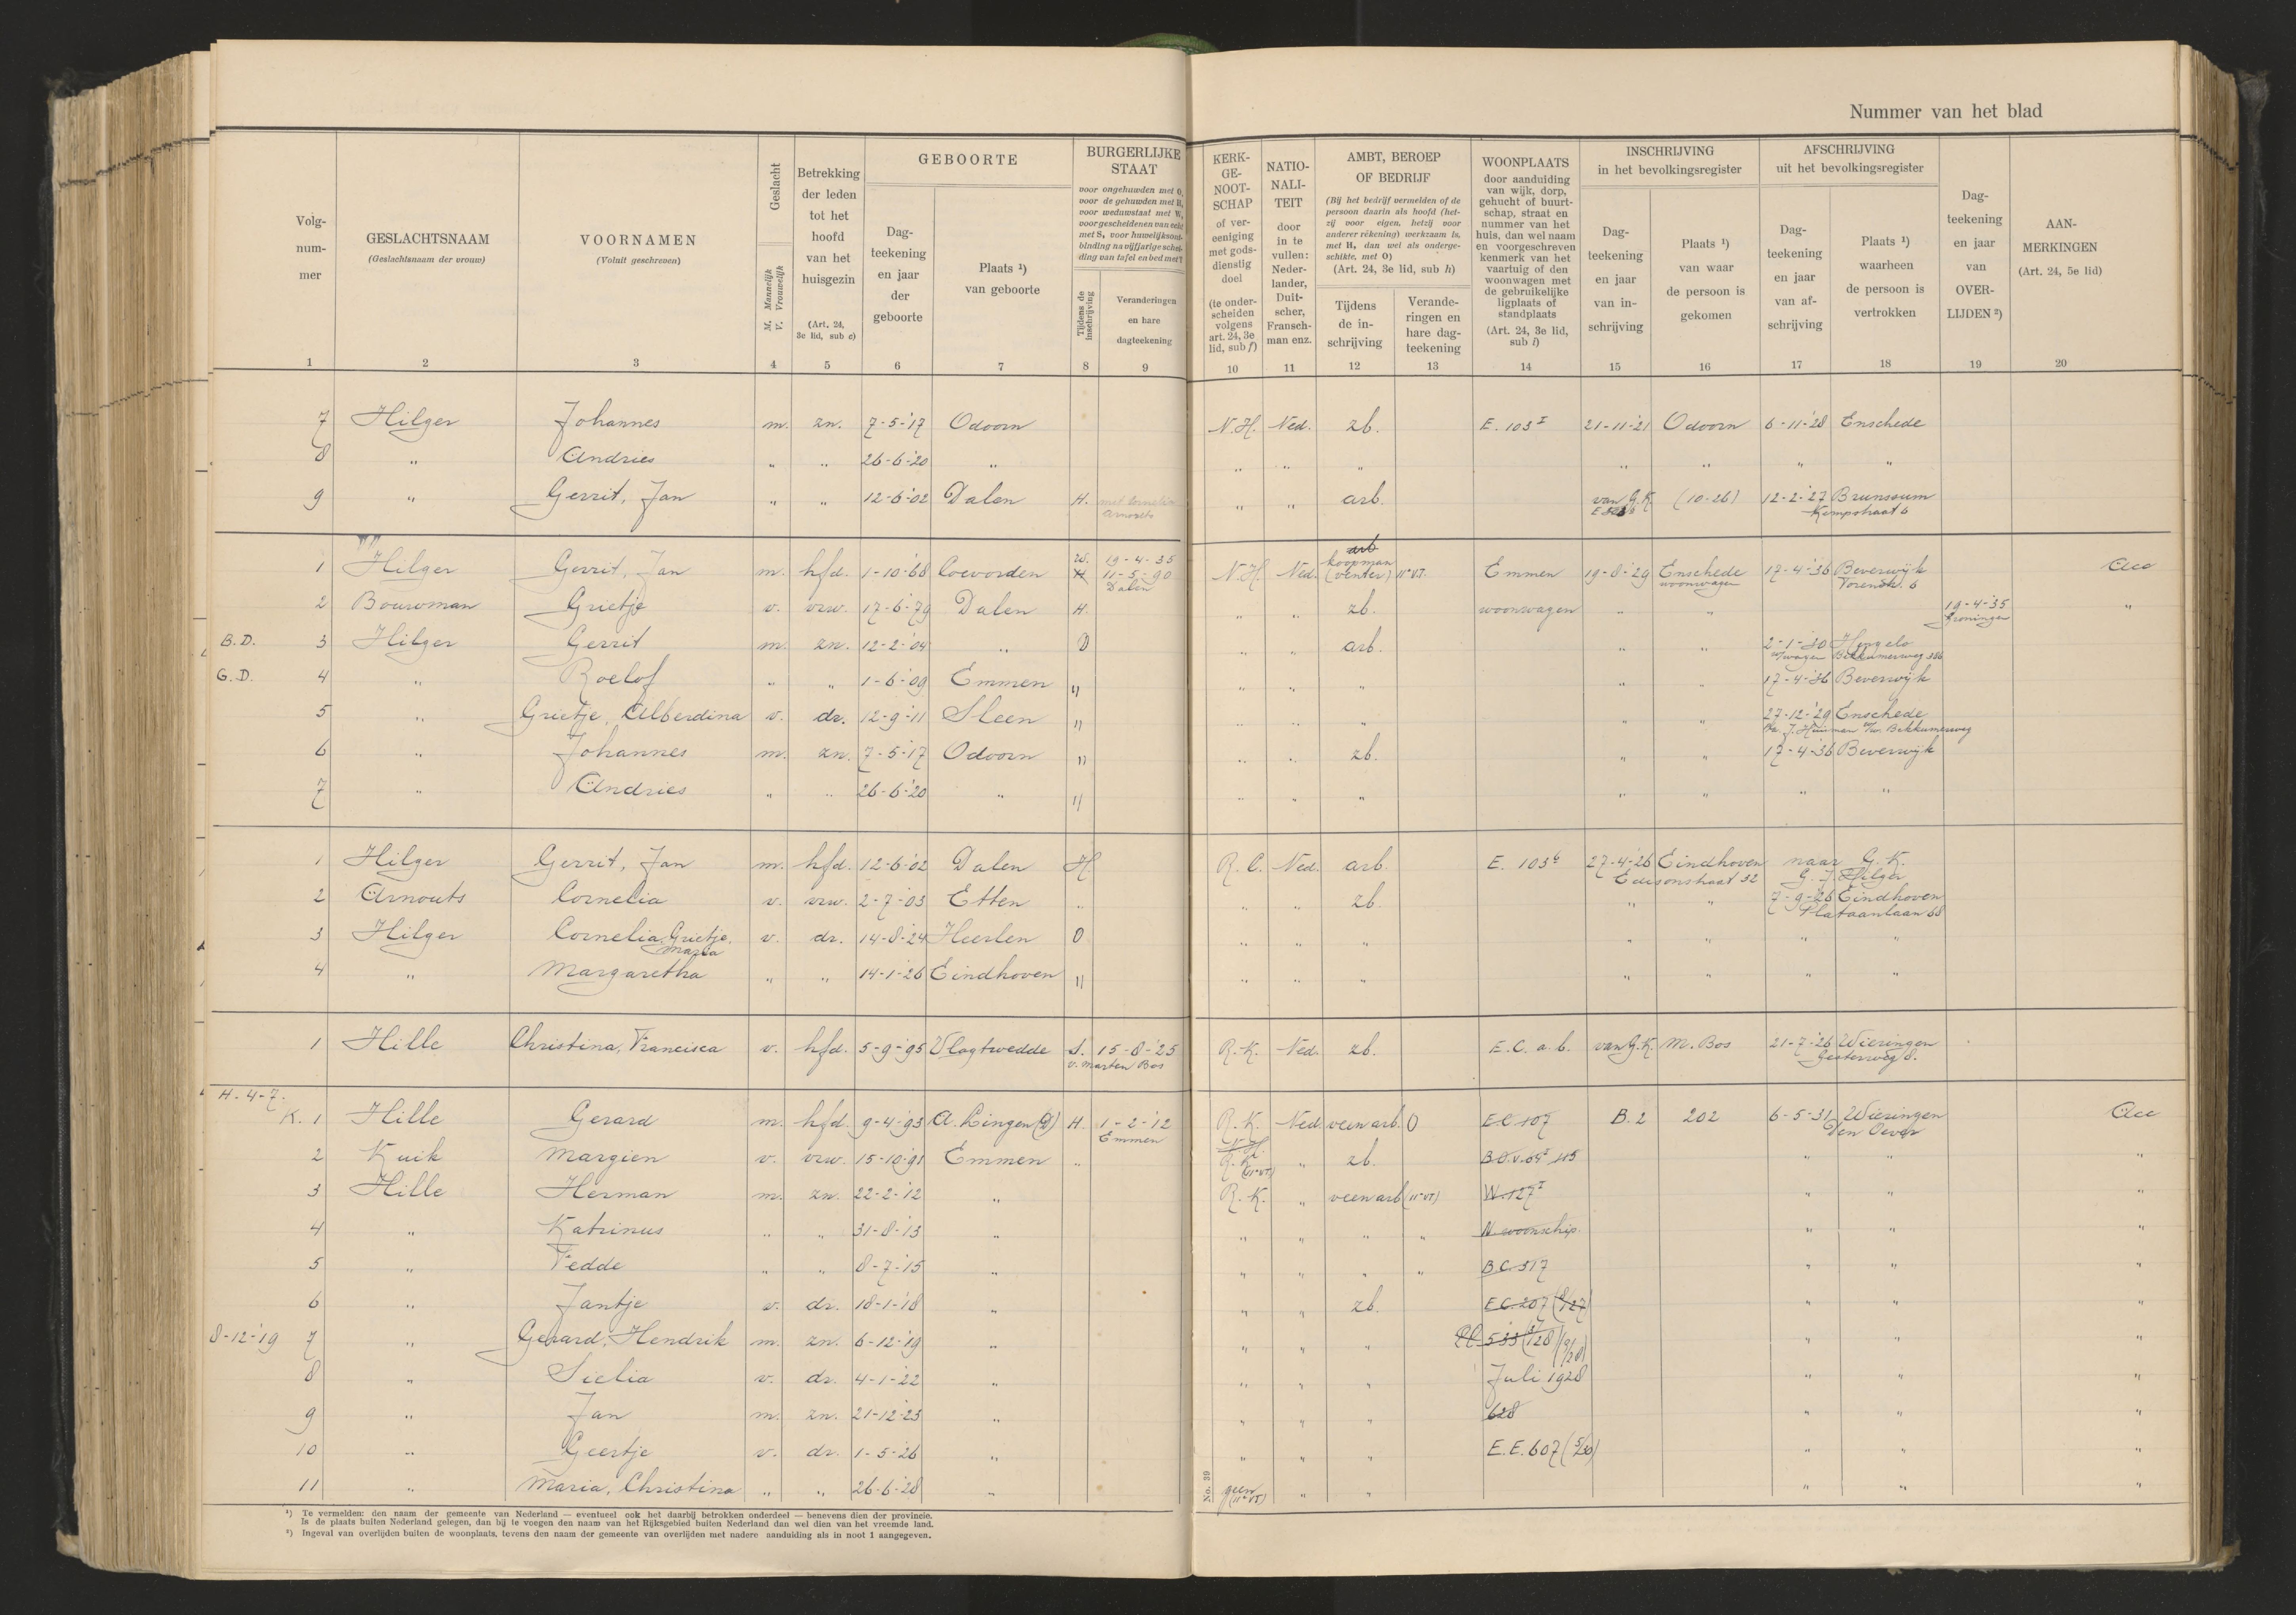 Nummer van het blad
Volgnummer
GESLACHTSNAAM
(Geslachtsnaam der vrouw)
VOORNAMEN
(Voluit geschreven)
Geslacht
M. Mannelijk
V. Vrouwelijk
Betrekking
der leden
tot het
hoofd
van het
huisgezin
(Art. 24,
3e lid, sub e)
GEBOORTE
Dag-
teekening
en jaar
der
geboorte
Plaats ¹)
van geboorte
BURGERLIJKE
STAAT
voor ongehuwden met O,
voor de gehuwden met H,
voor weduwstaat met W,
voor gescheidenen van echt
met S, voor huwelijksont-
binding na vijfjarige schei-
ding van tafel en bed met T
Tijdens de
inschrijving
Veranderingen
en hare
dagteekening
KERK-
GE-
NOOT-
SCHAP
of ver-
eeniging
met gods-
dienstig
doel
(te onder-
scheiden
volgens
art. 24, 3e
lid, sub f)
NATIO-
NALI-
TEIT
door
in te
vullen:
Neder-
lander,
Duit-
scher,
Fransch-
man enz.
AMBT, BEROEP
OF BEDRIJF
(Bij het bedrijf vermelden of de
persoon daarin als hoofd (het-
zij voor eigen, hetzij voor
anderer rékening) werkzaam is,
met H, dan wel als onderge-
schikte, met O)
(Art. 24, 3e lid, sub h)
Tijdens
de in-
schrijving
Verande-
ringen en
hare dag-
teekening
WOONPLAATS
door aanduiding
van wijk, dorp,
gehucht of buurt-
schap, straat en
nummer van het
huis, dan wel naam
en voorgeschreven
kenmerk van het
vaartuig of den
woonwagen met
de gebruikelijke
ligplaats of
standplaats
(Art. 24, 3e lid,
sub i)
INSCHRIJVING
in het bevolkingsregister
Dag-
teekening
en jaar
van in-
schrijving
Plaats ¹)
van waar
de persoon is
gekomen
AFSCHRIJVING
uit het bevolkingsregister
Dag-
teekening
en jaar
van af-
schrijving
Plaats ¹)
waarheen
de persoon is
vertrokken
Dag-
teekening
en jaar
van
OVER-
LIJDEN ²)
AAN-
MERKINGEN
(Art. 24, 5e lid)
1 2 3 4 5 6 7 8 9 10 11 12 13 14 15 16 17 18 19 20
7 Hilger Johannes m. zn. 7-5-'17 Odoorn N.H. Ned. zb. E. 103 I 21-11-21 Odoorn 6-11-'28 Enschede
8 " Andries " " 26-6-'20 " " " " " " " "
9 " Gerrit, Jan " " 12-6-'02 Dalen H. met Cornelia Arnouts " " arb. van G.K. (10-26) 12-2-'27 Brunssum
Kempstraat 6
1 Hilger Gerrit, Jan m. hfd. 1-10-'68 Coevorden W. 19-4-35 H 11-5-'90 Dalen N.H. Ned. arb koopman (venter) Emmen 19-8-'29 Enschede woonwagen 17-4-'36 Beverwijk Acc
2 Bouwman Grietje v. vrw. 17-6-'79 Dalen H. " " zb. woonwagen " " 19-4-'35 Groningen "
B.D. 3 Hilger Gerrit m. zn. 12-2-'04 " O " " arb. " " 2-1-'30 Hengelo
G.D. 4 " Roelof " " 1-6-'09 Emmen " " " " " " 17-4-'36 Beverwijk
5 " Grietje, Alberdina v. dr. 12-9-'11 Sleen " " " " " 27-12-'29 Enschede
6 " Johannes m. zn. 7-5-'17 Odoorn " " " zb. " " 17-4-'36 Beverwijk
7 " Andries " " 26-6-'20 " " " " " " " " "
1 Hilger Gerrit, Jan m. hfd. 12-6-'02 Dalen H. R.C. Ned. arb. E. 103 27-4-'26 Eindhoven naar G.K.
Edisonstraat 32 G. J. Hilger
2 Arnouts Cornelia v. vrw. 2-7-'03 Etten " " " zb. " " 7-9-'26 Eindhoven
Plataanlaan 68
3 Hilger Cornelia, Grietje, Maria v. dr. 14-8-'24 Heerlen O " " " " " " "
4 " Margaretha " " 14-1-'26 Eindhoven " " " " " " " "
1 Hille Christina, Francisca v. hfd. 5-9-'95 Vlagtwedde S. 15-8-'25 R.K. Ned. zb. E.C. a.b. van G.K. M. Bos 21-7-'26 Wieringen
v. Marten Bos
H-4-7.
K. 1 Hille Gerard m. hfd. 9-4-'93 A. Lingen (D) H. 1-2-'12 Emmen R.K. Ned. veenarb. O E.C. 107 B.2 202 6-5-31 Wieringen Den Oever Acc
2 Kuik Margien v. vrw. 15-10-'91 Emmen " N.H. R.K. " zb. " " "
3 Hille Herman m. zn. 22-2-'12 " R.K. " veenarb W. 127 I " " "
4 " Katrinus " " 31-8-'13 " " " " " N. woonschip. " " "
5 " Fedde " " 8-7-'15 " " " " " B.C. 517 " " "
6 " Jantje v. dr. 18-1-'18 " " " zb. E.C. 207 " " "
8-12-'19 7 " Gerard, Hendrik m. zn. 6-12-'19 " " " " 533 " " "
8 " Sielia v. dr. 4-1-'22 " " " " Juli 1928 " " "
9 " Jan m. zn. 21-12-'23 " " " " 628 " " "
10 " Geertje v. dr. 1-5-'26 " " " " E.E. 607 (5/30) " " "
11 " Maria, Christina " " 26-6-'28 " geen " " " " "
No. 39
¹) Te vermelden: den naam der gemeente van Nederland — eventueel ook het daarbij betrokken onderdeel — benevens dien der provincie.
Is de plaats buiten Nederland gelegen, dan bij te voegen den naam van het Rijksgebied buiten Nederland dan wel dien van het vreemde land.
²) Ingeval van overlijden buiten de woonplaats, tevens den naam der gemeente van overlijden met nadere aanduiding als in noot 1 aangegeven.